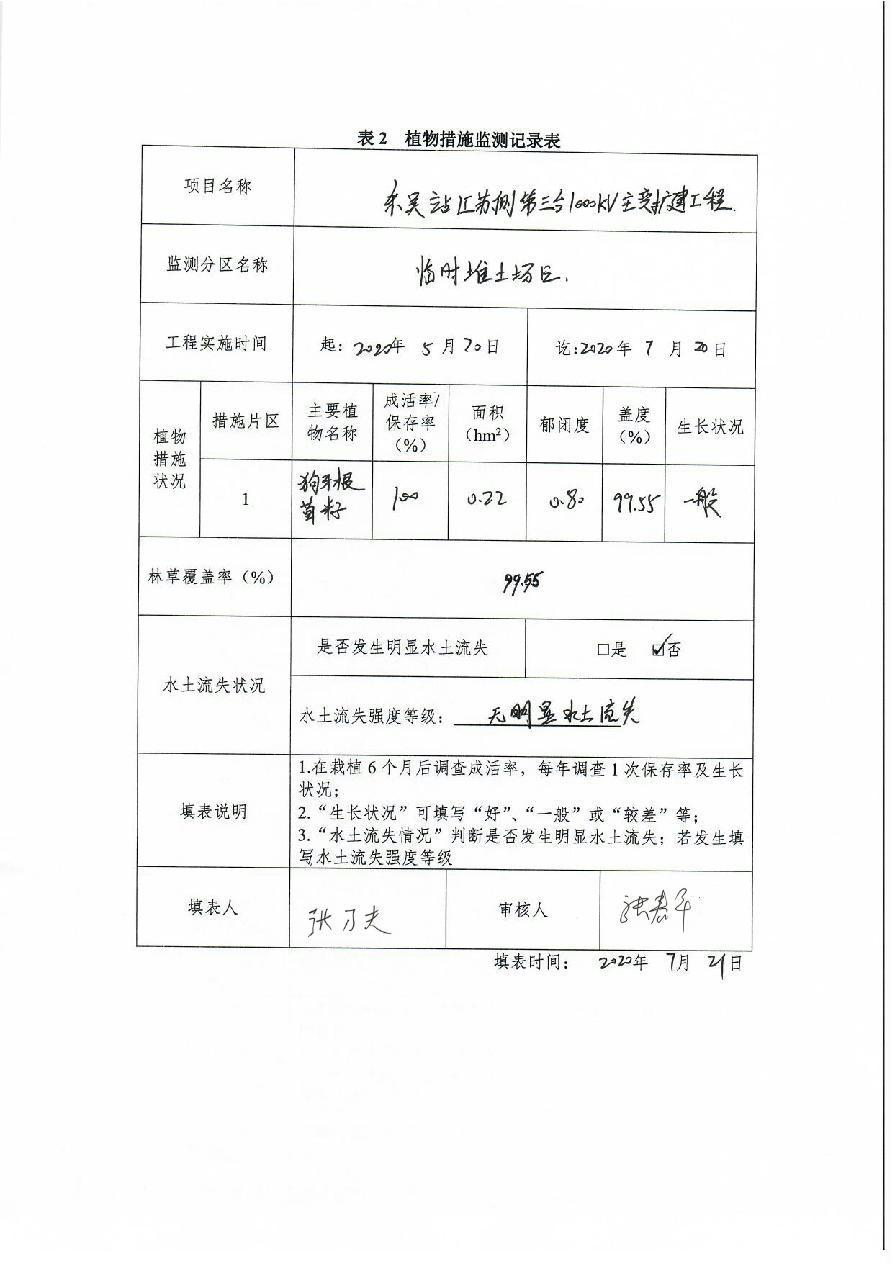 表2 植物措施监测记录表
项目名称
东吴站江苏侧第三台1000kV主变扩建工程.
监测分区名称
临时堆土场区.
工程实施时间
起: 2020年 5 月 20 日
讫:2020 年 7 月 20 日
植物
措施
状况
措施片区
主要植
物名称
成活率/
保存率
(%)
面积
(hm²)
郁闭度
盖度
(%)
生长状况
1
狗牙根
草籽
100
0.22
0.80
99.55
一般
林草覆盖率(%)
99.55
水土流失状况
是否发生明显水土流失
□是 ☑否
水土流失强度等级: 无明显水土流失
填表说明
1.在栽植 6 个月后调查成活率，每年调查 1 次保存率及生长
状况；
2.“生长状况”可填写“好”、“一般”或“较差”等；
3.“水土流失情况”判断是否发生明显水土流失；若发生填
写水土流失强度等级
填表人
审核人
填表时间： 2020年 7月 21日